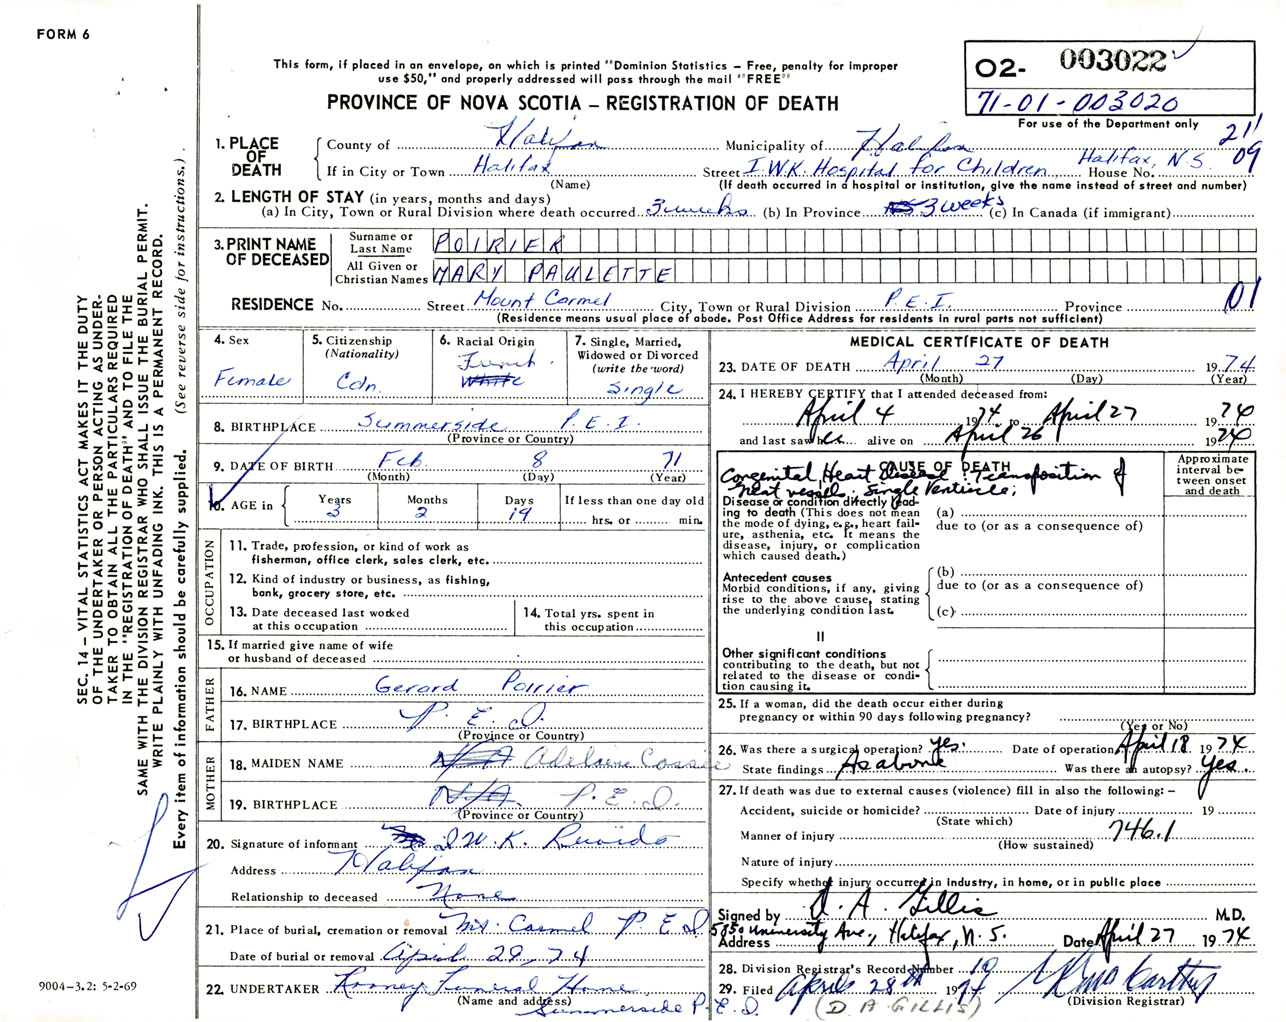 FORM 6
This form, if placed in an envelope, on which is printed "Dominion Statistics – Free, penalty for improper
use $50," and properly addressed will pass through the mail "FREE"
PROVINCE OF NOVA SCOTIA – REGISTRATION OF DEATH
O2- 003022
71-01-003020
For use of the Department only
211
09
1. PLACE OF DEATH
County of Halifax Municipality of Halifax
If in City or Town Halifax Street I.W.K. Hospital for Children House No. Halifax, N.S.
(Name) (If death occurred in a hospital or institution, give the name instead of street and number)
2. LENGTH OF STAY (in years, months and days)
(a) In City, Town or Rural Division where death occurred 3 weeks (b) In Province 3 weeks (c) In Canada (if immigrant)
3. PRINT NAME OF DECEASED
Surname or Last Name POIRIER
All Given or Christian Names MARY PAULETTE
RESIDENCE No. Street Mount Carmel City, Town or Rural Division P.E.I. Province 01
(Residence means usual place of abode. Post Office Address for residents in rural parts not sufficient)
4. Sex
Female
5. Citizenship
(Nationality)
Cdn.
6. Racial Origin
French
White
7. Single, Married,
Widowed or Divorced
(write the word)
Single
8. BIRTHPLACE Summerside P.E.I.
(Province or Country)
9. DATE OF BIRTH Feb. 8 71
(Month) (Day) (Year)
10. AGE in
Years Months Days If less than one day old
3 2 19 hrs. or min.
OCCUPATION
11. Trade, profession, or kind of work as
fisherman, office clerk, sales clerk, etc.
12. Kind of industry or business, as fishing,
bank, grocery store, etc.
13. Date deceased last worked
at this occupation
14. Total yrs. spent in
this occupation
15. If married give name of wife
or husband of deceased
FATHER
16. NAME Gerard Poirier
17. BIRTHPLACE P.E.I.
(Province or Country)
MOTHER
18. MAIDEN NAME N/A Adelaine
19. BIRTHPLACE N/A P.E.I.
(Province or Country)
20. Signature of informant I.W.K.
Address Halifax
Relationship to deceased None
21. Place of burial, cremation or removal Mt. Carmel P.E.I.
Date of burial or removal April 29, 74
22. UNDERTAKER Rooney Funeral Home
(Name and address)
Summerside P.E.I.
MEDICAL CERTIFICATE OF DEATH
23. DATE OF DEATH April 27 1974
(Month) (Day) (Year)
24. I HEREBY CERTIFY that I attended deceased from:
April 4 1974 to April 27 1974
and last saw her alive on April 26 1974
CAUSE OF DEATH
Approximate
interval be-
tween onset
and death
Congenital Heart Disease: Transposition of
great vessels: Single Ventricle;
Disease or condition directly lead-
ing to death (This does not mean
the mode of dying, e.g., heart fail-
ure, asthenia, etc. It means the
disease, injury, or complication
which caused death.)
(a)
due to (or as a consequence of)
Antecedent causes
Morbid conditions, if any, giving
rise to the above cause, stating
the underlying condition last.
(b)
due to (or as a consequence of)
(c)
II
Other significant conditions
contributing to the death, but not
related to the disease or condi-
tion causing it.
25. If a woman, did the death occur either during
pregnancy or within 90 days following pregnancy?
(Yes or No)
26. Was there a surgical operation? Yes. Date of operation April 18 1974
State findings As above Was there an autopsy? Yes.
27. If death was due to external causes (violence) fill in also the following: –
Accident, suicide or homicide? Date of injury 19
(State which)
Manner of injury 746.1
(How sustained)
Nature of injury
Specify whether injury occurred in industry, in home, or in public place
Signed by D. A. Gillis M.D.
Address 5850 University Ave., Halifax, N.S. Date April 27 1974
28. Division Registrar's Record Number 19
29. Filed April 28th 1974
(Division Registrar)
(D. A. GILLIS)
SEC. 14 – VITAL STATISTICS ACT MAKES IT THE DUTY
OF THE UNDERTAKER OR PERSON ACTING AS UNDER-
TAKER TO OBTAIN ALL THE PARTICULARS REQUIRED
IN THE "REGISTRATION OF DEATH" AND TO FILE THE
SAME WITH THE DIVISION REGISTRAR WHO SHALL ISSUE THE BURIAL PERMIT.
WRITE PLAINLY WITH UNFADING INK. THIS IS A PERMANENT RECORD.
Every item of information should be carefully supplied. (See reverse side for instructions.)
9004–3.2: 5-2-69